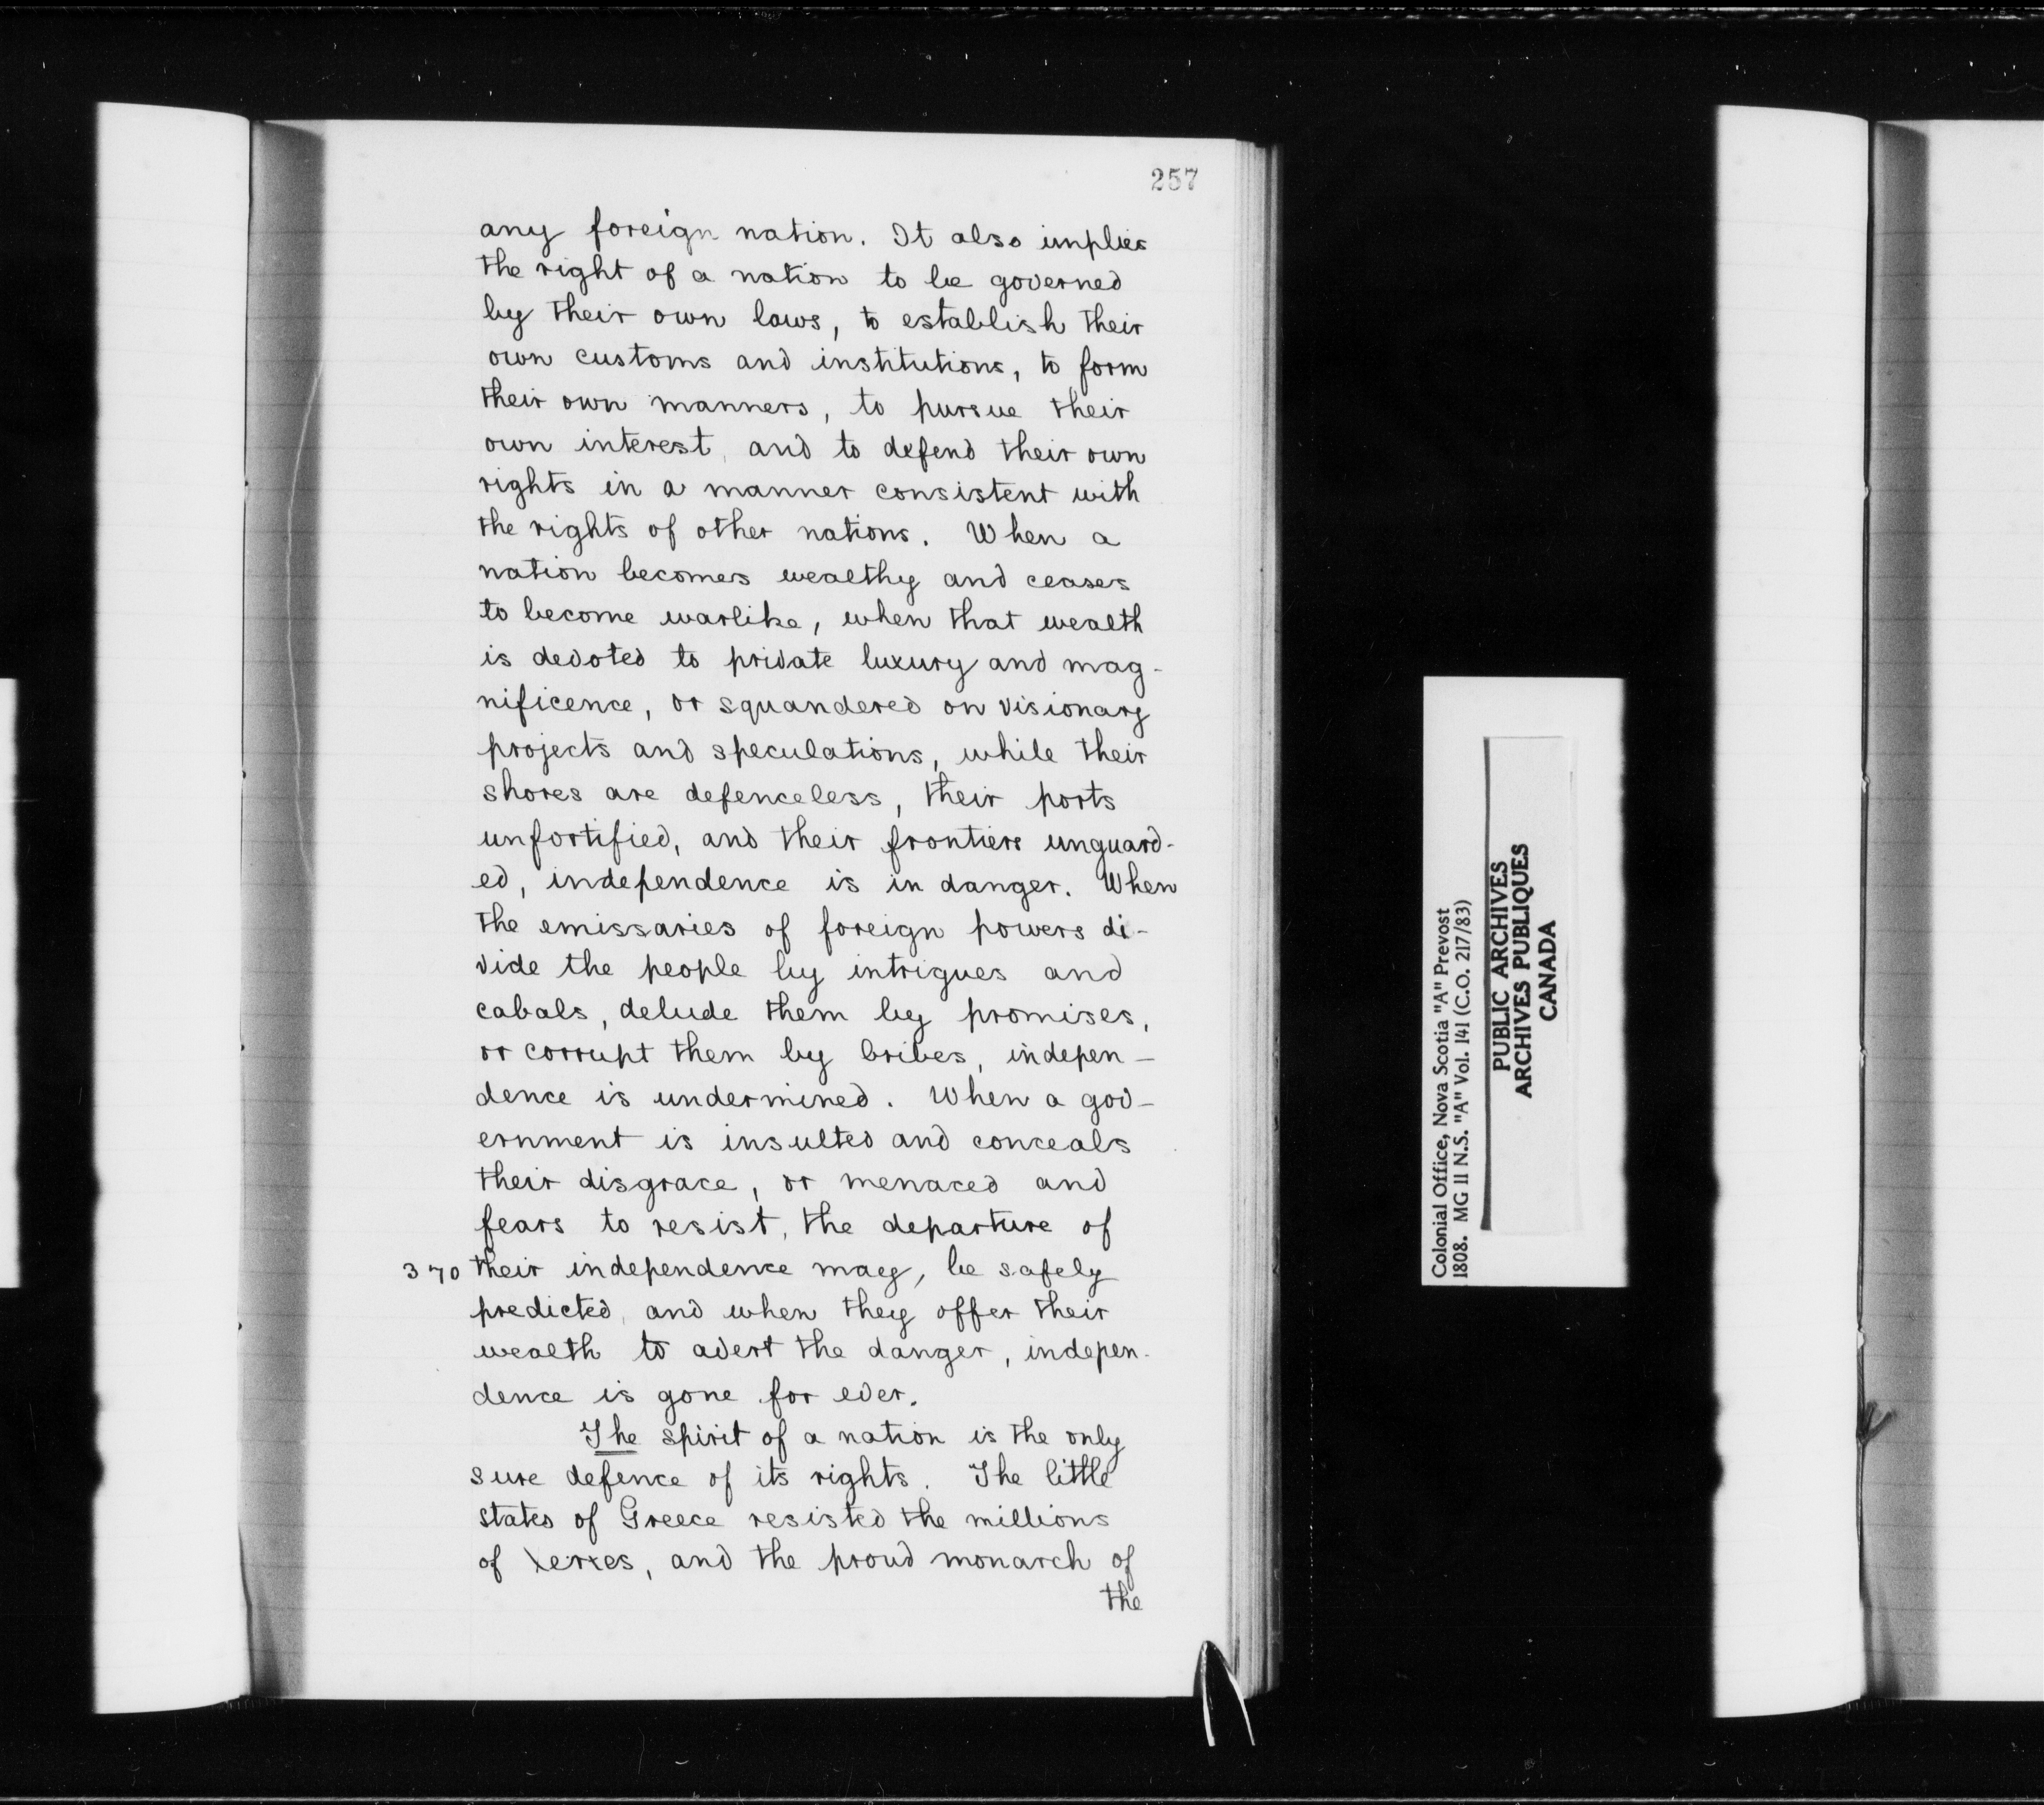 257
any foreign nation. It also implies
the right of a nation to be governed
by their own laws, to establish their
own customs and institutions, to form
their own manners, to pursue their
own interest, and to defend their own
rights in a manner consistent with
the rights of other nations. When a
nation becomes wealthy and ceases
to become warlike, when that wealth
is devoted to private luxury and mag-
nificence, or squandered on visionary
projects and speculations, while their
shores are defenceless, their ports
unfortified, and their frontiers unguard-
ed, independence is in danger. When
the emissaries of foreign powers di-
vide the people by intrigues and
cabals, delude them by promises,
or corrupt them by bribes, indepen-
dence is undermined. When a gov-
ernment is insulted and conceals
their disgrace, or menaced and
fears to resist, the departure of
370 their independence may, be safely
predicted, and when they offer their
wealth to avert the danger, indepen-
dence is gone for ever.
The spirit of a nation is the only
sure defence of its rights. The little
states of Greece resisted the millions
of Xerxes, and the proud monarch of
the
Colonial Office, Nova Scotia "A" Prevost
1808. MG 11 N.S. "A" Vol. 141 (C.O. 217/83)
PUBLIC ARCHIVES
ARCHIVES PUBLIQUES
CANADA